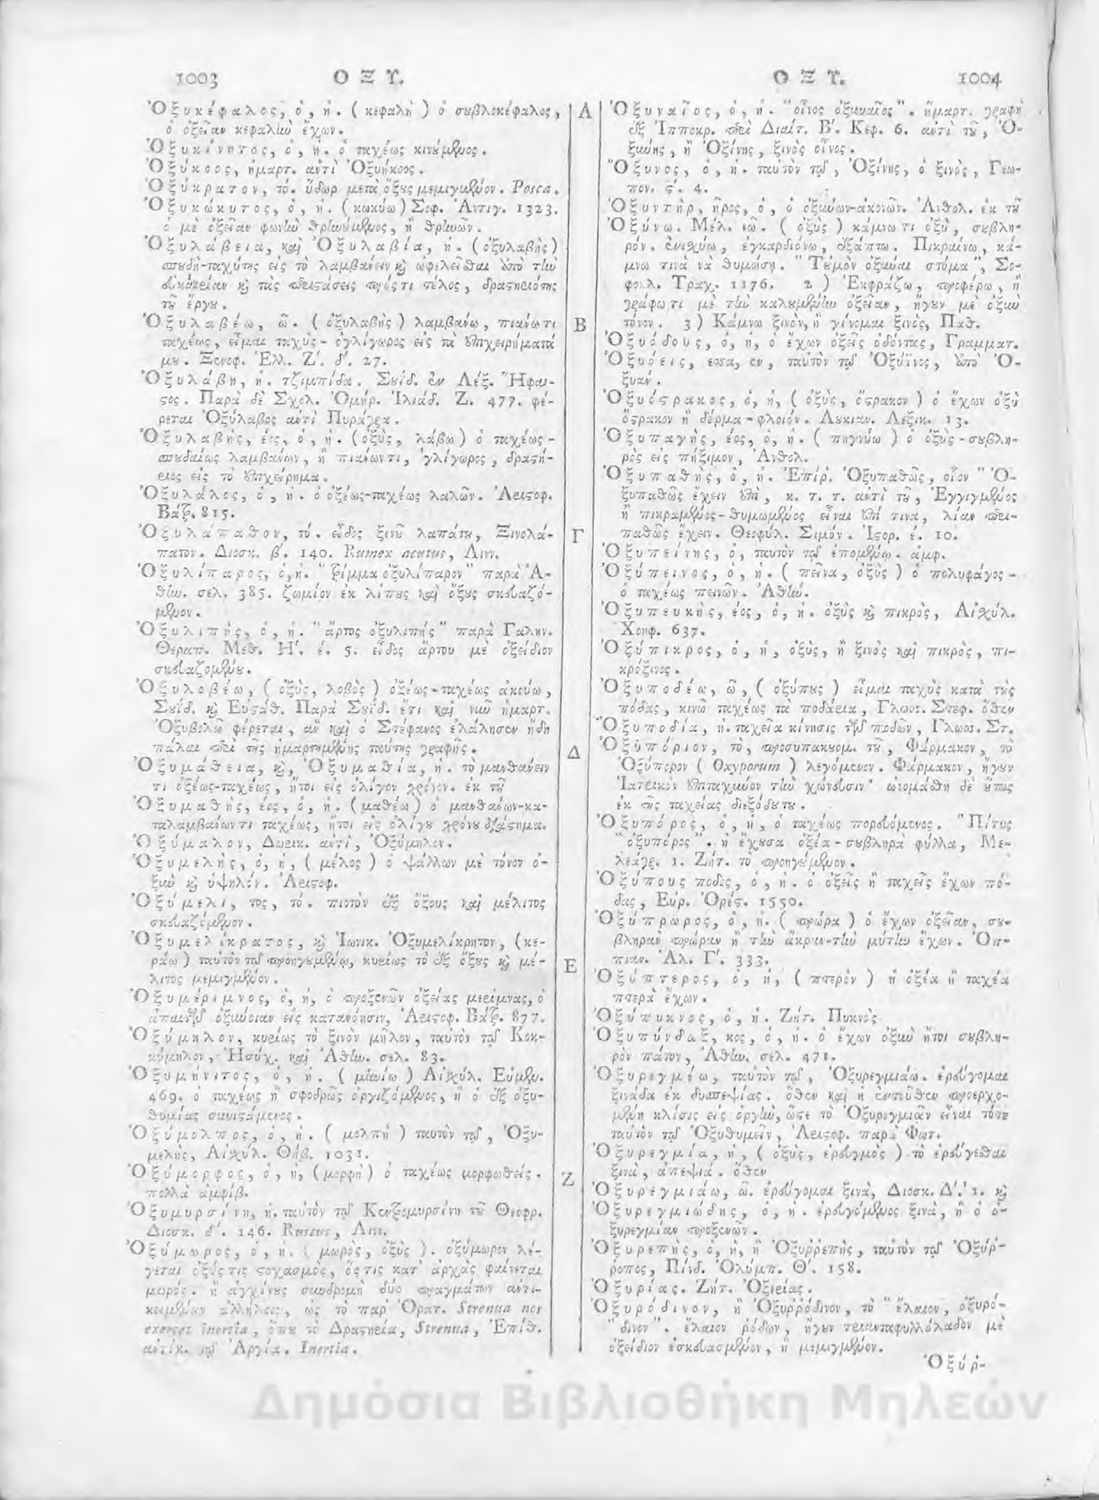 1003 Ο Ξ Υ.
Ὀξυκέφαλος, ὁ, ἡ. ( κεφαλὴ ) ὁ σουβλοκέφαλος,
ὁ ὀξεῖαν κεφαλὴν ἔχων.
Ὀξυκίνητος, ὁ, ἡ. ὁ ταχέως κινούμενος.
Ὀξύκοος, ἡμαρτ. ἀντὶ Ὀξυήκοος.
Ὀξύκρατον, τό. ὕδωρ μετὰ ὄξους μεμιγμένον. Posca.
Ὀξυκώκυτος, ὁ, ἡ. ( κωκύω ) Σοφ. Ἀντιγ. 1323.
ὁ μὲ ὀξεῖαν φωνὴν θρηνούμενος, ἢ θρηνῶν.
Ὀξυλάβεια, καὶ Ὀξυλαβία, ἡ. ( ὀξυλαβὴς )
σπουδὴ-ταχύτης εἰς τὸ λαμβάνειν καὶ ὠφελεῖσθαι ὑπὸ τὴν
εὐκαιρίαν καὶ τὰς περιστάσεις πρός τι τέλος, δραστηριότης
τοῦ ἔργου.
Ὀξυλαβέω, ῶ. ( ὀξυλαβὴς ) λαμβάνω, πιάνω τι
ταχέως, εἶμαι ταχὺς - ὀγλίγωρος εἰς τὰ ἐπιχειρήματά
μου. Ξενοφ. Ἑλλ. Ζ΄. δ΄. 27.
Ὀξυλάβη, ἡ. τζιμπίδα. Σουΐδ. ἐν Λέξ. Ἥφαι-
στος. Παρὰ δὲ Σχολ. Ὁμήρ. Ἰλιάδ. Ζ. 477. φέ-
ρεται Ὀξύλαβος ἀντὶ Πυράγρα.
Ὀξυλαβὴς, έος, ὁ, ἡ. (ὀξὺς, λάβω) ὁ ταχέως-
σπουδαίως λαμβάνων, ἢ πιάνων τι, γλίγωρος, δραστή-
ριος εἰς τὸ ἐπιχείρημα.
Ὀξυλάλος, ὁ, ἡ. ὁ ὀξέως-ταχέως λαλῶν. Ἀριστοφ.
Βάτρ. 815.
Ὀξυλάπαθον, τό. εἶδος ξινοῦ λαπάτου, Ξινολά-
πατον. Διοσκ. β΄. 140. Rumex acutus, Λινν.
Ὀξυλίπαρος, ὁ, ἡ. " τρίμμα ὀξυλίπαρον " παρὰ Ἀ-
θην. σελ. 385. ζωμίον ἐκ λίπους καὶ ὄξους σκευαζό-
μενον.
Ὀξυλιπὴς, ὁ, ἡ. " ἄρτος ὀξυλιπὴς " παρὰ Γαλην.
Θεραπ. Μεθ. Η΄. έ. 5. εἶδος ἄρτου μὲ ὀξείδιον
σκευαζομένου.
Ὀξυλοβέω, ( ὀξὺς, λοβὸς ) ὀξέως-ταχέως ἀκούω,
Σουΐδ. καὶ Εὐσταθ. Παρὰ Σουΐδ. ἔτι καὶ νῦν ἡμαρτ.
Ὀξυβολῶ φέρεται, ἂν καὶ ὁ Στέφανος ἐλάλησεν ἤδη
πάλαι περὶ τῆς ἡμαρτημένης ταύτης γραφῆς.
Ὀξυμάθεια, καὶ, Ὀξυμαθία, ἡ. τὸ μανθάνειν
τι ὀξέως-ταχέως, ἤτοι εἰς ὀλίγον χρόνον. ἐκ τοῦ
Ὀξυμαθὴς, έος, ὁ, ἡ. ( μαθέω ) ὁ μανθάνων-κα-
ταλαμβάνων τι ταχέως, ἤτοι εἰς ὀλίγου χρόνου διάστημα.
Ὀξύμαλον, Δωρικ. ἀντὶ, Ὀξύμηλον.
Ὀξυμελὴς, ὁ, ἡ, ( μέλος ) ὁ ψάλλων μὲ τόνον ὀ-
ξὺν καὶ ὑψηλόν. Ἀριστοφ.
Ὀξύμελι, τος, τό. πιοτὸν ἐξ ὄξους καὶ μέλιτος
σκευαζόμενον.
Ὀξυμελίκρατος, καὶ Ἰωνικ. Ὀξυμελίκρητον, ( κε-
ράω ) ταὐτὸν τῷ προηγουμένῳ, κυρίως τὸ ἐξ ὄξους καὶ μέ-
λιτος μεμιγμένον.
Ὀξυμέριμνος, ὁ, ἡ, ὁ προξενῶν ὀξείας μερίμνας, ὁ
ἀπαιτῶν ὀξύνοιαν εἰς κατανόησιν, Ἀριστοφ. Βάτρ. 877.
Ὀξύμηλον, κυρίως τὸ ξινὸν μῆλον, ταὐτὸν τῷ Κοκ-
κύμηλον, Ἡσύχ. καὶ Ἀθην. σελ. 83.
Ὀξυμήνιτος, ὁ, ἡ. ( μηνίω ) Αἰσχύλ. Εὐμέν.
469. ὁ ταχέως ἢ σφοδρῶς ὀργιζόμενος, ἢ ὁ ἐξ ὀξυ-
θυμίας συνιστάμενος.
Ὀξύμολπος, ὁ, ἡ. ( μολπὴ ) ταὐτὸν τῷ, Ὀξυ-
μελὴς, Αἰσχύλ. Θήβ. 1031.
Ὀξύμορφος, ὁ, ἡ, (μορφὴ) ὁ ταχέως μορφωθείς.
πολλὰ ἀμφίβ.
Ὀξυμυρσίνη, ἡ. ταὐτὸν τῷ Κεντρομυρσίνη τοῦ Θεοφρ.
Διοσκ. δ΄. 146. Ruscus, Λινν.
Ὀξύμωρος, ὁ, ἡ. ( μωρὸς, ὀξὺς ). ὀξύμωρον λέ-
γεται ὀξύς τις στοχασμὸς, ὅς τις κατ' ἀρχὰς φαίνεται
μωρὸς. ἢ ἀγχίνους συνδρομὴ δύο πραγμάτων ἀντι-
κειμένων ἀλλήλοις, ὡς τὸ παρ' Ὁρατ. Strenua nos
exercet inertia, ὅπου τὸ Δραστηρία, Strenua, Ἐπίθ.
ἀντίκ. τῷ Ἀργία. Inertia.
Α
Β
Γ
Δ
Ε
Ζ
Ο Ξ Υ. 1004
Ὀξυναῖος, ὁ, ἡ. " οἶνος ὀξυναῖος ". ἡμαρτ. γραφὴ
ἐξ Ἱπποκρ. περὶ Διαίτ. Β΄. Κεφ. 6. ἀντὶ τοῦ, Ὀ-
ξίνης, ἢ Ὀξίνης, ξινὸς οἶνος.
Ὄξυνος, ὁ, ἡ. ταὐτὸν τῷ, Ὀξίνης, ὁ ξινὸς, Γεω-
πον. ς΄. 4.
Ὀξυντὴρ, ῆρος, ὁ, ὁ ὀξύνων-ἀκονῶν. Ἀνθολ. ἐκ τοῦ
Ὀξύνω. Μέλ. νῶ. ( ὀξὺς ) κάμνω τι ὀξὺ, σουβλη-
ρόν. ἐνισχύω, ἐγκαρδιόνω, ἐξάπτω. Πικραίνω, κά-
μνω τινὰ νὰ θυμώσῃ. " Τοὐμὸν ὀξῦναι στόμα ", Σο-
φοκλ. Τραχ. 1176. 2 ) Ἐκφράζω, προφέρω, ἢ
γράφω τι μὲ τὴν καλουμένην ὀξεῖαν, ἤγουν μὲ ὀξὺν
τόνον. 3 ) Κάμνω ξινὸν, ἢ γίνομαι ξινὸς, Παθ.
Ὀξυόδους, ὁ, ἡ, ὁ ἔχων ὀξεῖς ὀδόντας, Γραμματ.
Ὀξυόεις, εσσα, εν, ταὐτὸν τῷ Ὀξύϊνος, ὑπὸ Ὀ-
ξυαν.
Ὀξυόστρακος, ὁ, ἡ, ( ὀξὺς, ὄστρακον ) ὁ ἔχων ὀξὺ
ὄστρακον ἢ δέρμα-φλοιόν. Λουκιαν. Λεξιφ. 13.
Ὀξυπαγὴς, έος, ὁ, ἡ. ( πηγνύω ) ὁ ὀξὺς-σουβλη-
ρὸς εἰς πήξιμον, Ἀνθολ.
Ὀξυπαθὴς, ὁ, ἡ. Ἐπίρ. Ὀξυπαθῶς, οἷον " Ὀ-
ξυπαθῶς ἔχειν ἐπὶ, κ. τ. τ. ἀντὶ τοῦ, Ἐγγιγμένος
ἢ πικραμένος-θυμωμένος εἶναι ἐπί τινα, λίαν περι-
παθῶς ἔχειν. Θεοφύλ. Σιμόν. Ἱστορ. έ. 10.
Ὀξυπείνης, ὁ, ταὐτὸν τῷ ἑπομένῳ. ἀμφ.
Ὀξύπεινος, ὁ, ἡ. ( πεῖνα, ὀξὺς ) ὁ πολυφάγος-
ὁ ταχέως πεινῶν. Ἀθην.
Ὀξυπευκὴς, έος, ὁ, ἡ. ὀξὺς καὶ πικρὸς, Αἰσχύλ.
Χοηφ. 637.
Ὀξύπικρος, ὁ, ἡ, ὀξὺς, ἢ ξινὸς καὶ πικρὸς, πι-
κρόξινος.
Ὀξυποδέω, ῶ, ( ὀξύπους ) εἶμαι ταχὺς κατὰ τοὺς
πόδας, κινῶ ταχέως τὰ ποδάρια, Γλωσσ. Στεφ. ὅθεν
Ὀξυποδία, ἡ. ταχεῖα κίνησις τῶν ποδῶν, Γλωσσ. Στ.
Ὀξυπόριον, τὸ, προσυπακουομ. τοῦ, Φάρμακον, τὸ
Ὀξύπορον ( Oxyporum ) λεγόμενον. Φάρμακον, ἤγουν
Ἰατρικὸν ἐπιταχῦνον τὴν χώνευσιν· ὠνομάσθη δὲ οὕτως
ἐκ τῆς ταχείας διεξόδου του.
Ὀξυπόρος, ὁ, ἡ, ὁ ταχέως πορευόμενος. " Πίτυς
" ὀξυπόρος ". ἡ ἔχουσα ὀξέα-σουβληρὰ φύλλα, Με-
λέαγρ. 1. Ζήτ. τὸ προηγούμενον.
Ὀξύπους ποδος, ὁ, ἡ. ὁ ὀξεῖς ἢ ταχεῖς ἔχων πό-
δας, Εὐρ. Ὀρέστ. 1550.
Ὀξύπρωρος, ὁ, ἡ. ( πρώρα ) ὁ ἔχων ὀξεῖαν, σου-
βληρὰν πρώραν ἢ τὴν ἄκραν-τὴν μύτην ἔχων. Ὀπ-
πιαν. Ἁλ. Γ΄. 333.
Ὀξύπτερος, ὁ, ἡ, ( πτερὸν ) ἡ ὀξέα ἢ ταχέα
πτερὰ ἔχων.
Ὀξύπυκνος, ὁ, ἡ. Ζήτ. Πυκνός.
Ὀξυπύνδαξ, κος, ὁ, ἡ. ὁ ἔχων ὀξὺν ἤτοι σουβλη-
ρὸν πάτον, Ἀθην. σελ. 471.
Ὀξυρεγμέω, ταὐτὸν τῷ, Ὀξυρεγμιάω. ἐρεύγομαι
ξινάδα ἐκ δυσπεψίας. ὅθεν καὶ ἡ ἐντεῦθεν προερχο-
μένη κλίσις εἰς ὀργὴν, ὥστε τὸ Ὀξυρεγμιᾶν εἶναι τότε
ταὐτὸν τῷ Ὀξυθυμεῖν, Ἀριστοφ. παρὰ Φωτ.
Ὀξυρεγμία, ἡ, ( ὀξὺς, ἐρευγμὸς ) τὸ ἐρεύγεσθαι
ξινὰ, ἀπεψία. ὅθεν
Ὀξυρεγμιάω, ῶ. ἐρεύγομαι ξινὰ, Διοσκ. Δ΄. 1. καὶ
Ὀξυρεγμιώδης, ὁ, ἡ. ἐρευγόμενος ξινὰ, ἢ ὁ ὀ-
ξυρεγμίαν προξενῶν.
Ὀξυρεπὴς, ὁ, ἡ, ἢ Ὀξυῤῥεπὴς, ταὐτὸν τῷ Ὀξύῤ-
ῥοπος, Πίνδ. Ὀλύμπ. Θ΄. 158.
Ὀξυρίας. Ζήτ. Ὀξιείας.
Ὀξυρόδινον, ἢ Ὀξυῤῥόδινον, τὸ " ἔλαιον, ὀξυρό-
" δινον ". ἔλαιον ῥόδων, ἤγουν τριανταφυλλόλαδον μὲ
ὀξείδιον ἐσκευασμένον, ἢ μεμιγμένον.
Ὀξύρ-
Δημόσια Βιβλιοθήκη Μηλεών